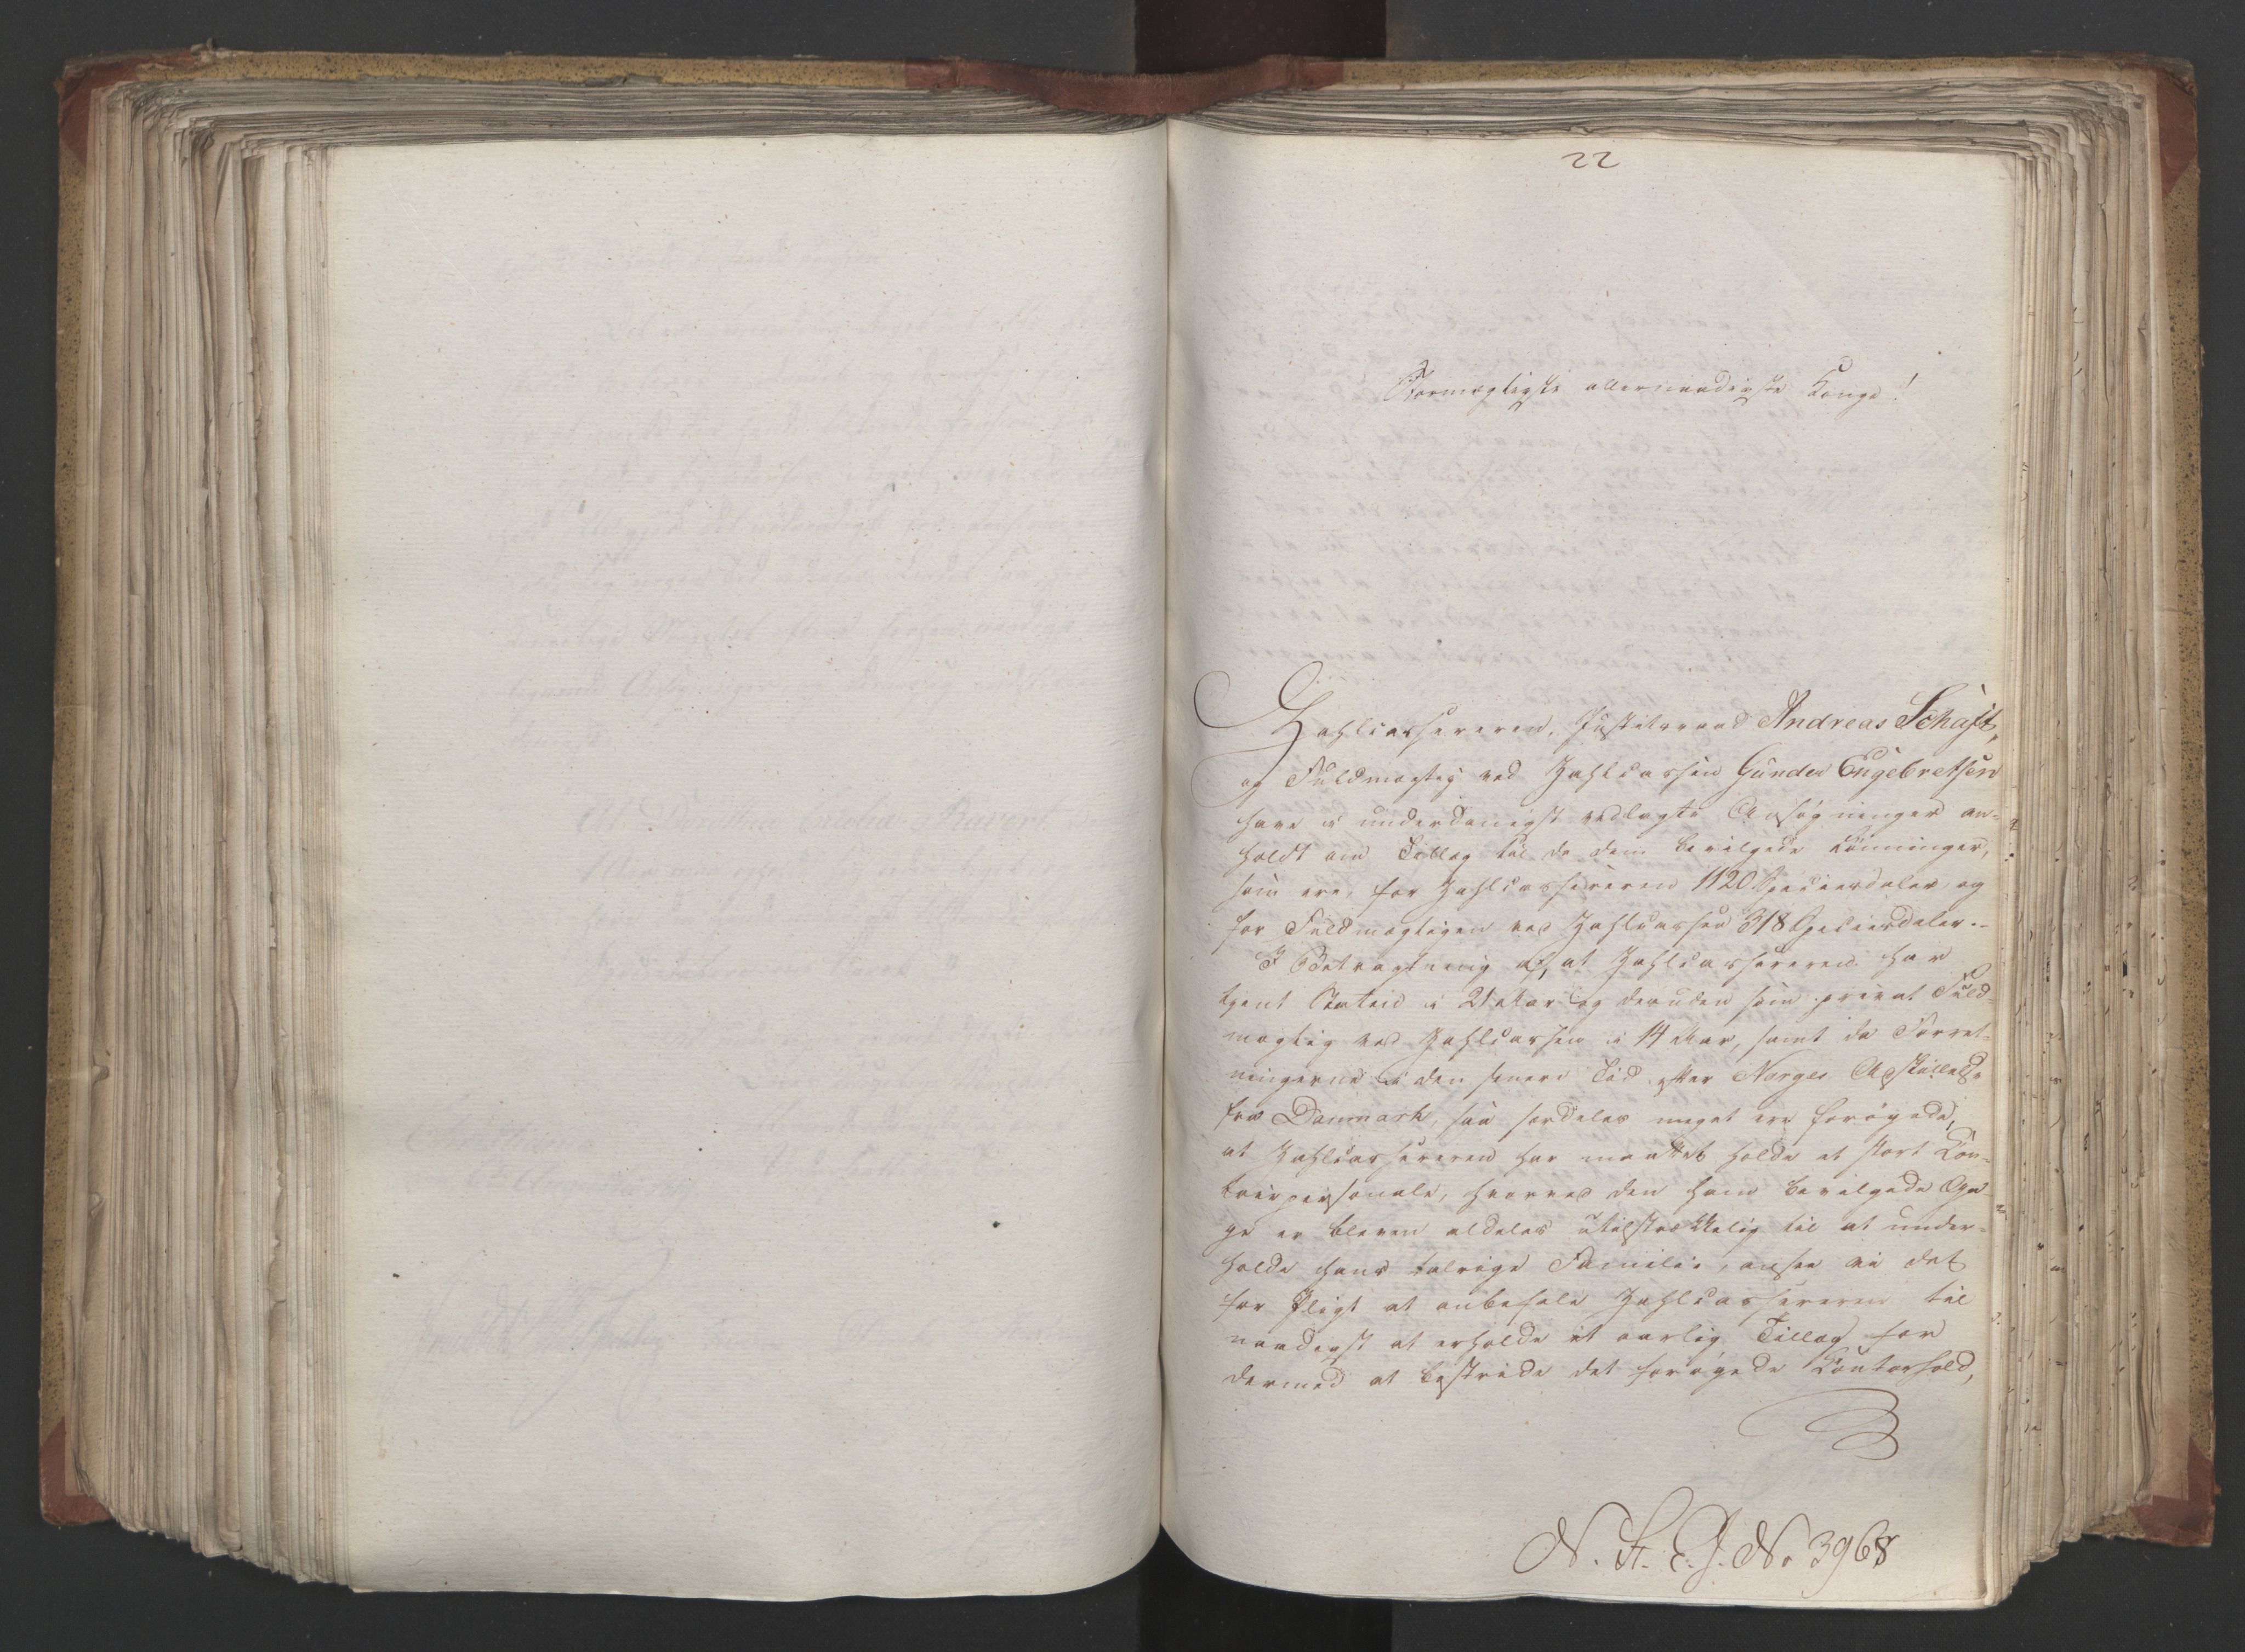 22
Stormægtigste allernaadigste Konge!
Zahlcassereren, Justitsraad Andreas Schaft,
og Fuldmægtig ved Zahlcassen Gunder Engebretsen
have i underdanigst vedlagte Ansøgninger an-
holdt om Tillæg til de dem bevilgede Lønninger,
som ere, for Zahlcassereren 1120 Speciesdaler og
for Fuldmægtigen ved Zahlcassen 318 Speciesdaler.-
I Betragtning af, at Zahlcassereren har
tjent Staten i 21 Aar og desuden som privat Fuld-
mægtig ved Zahlcassen i 14 Aar, samt da Forret-
ningerne i den senere Tid efter Norges Adskillelse
fra Danmark, saa særdeles meget ere forøgede,
at Zahlcassereren har maattet holde et stort Con-
toirpersonale, hvorved den ham bevilgede Ga-
ge er bleven aldeles utilstrækkelig til at under-
holde hans talrige Familie, ansee vi det
for Pligt at anbefale Zahlcassereren til
naadigst at erholde et aarlig Tillæg for
dermed at bestride det forøgede Contorhold,
N. St. E. J. No 3968